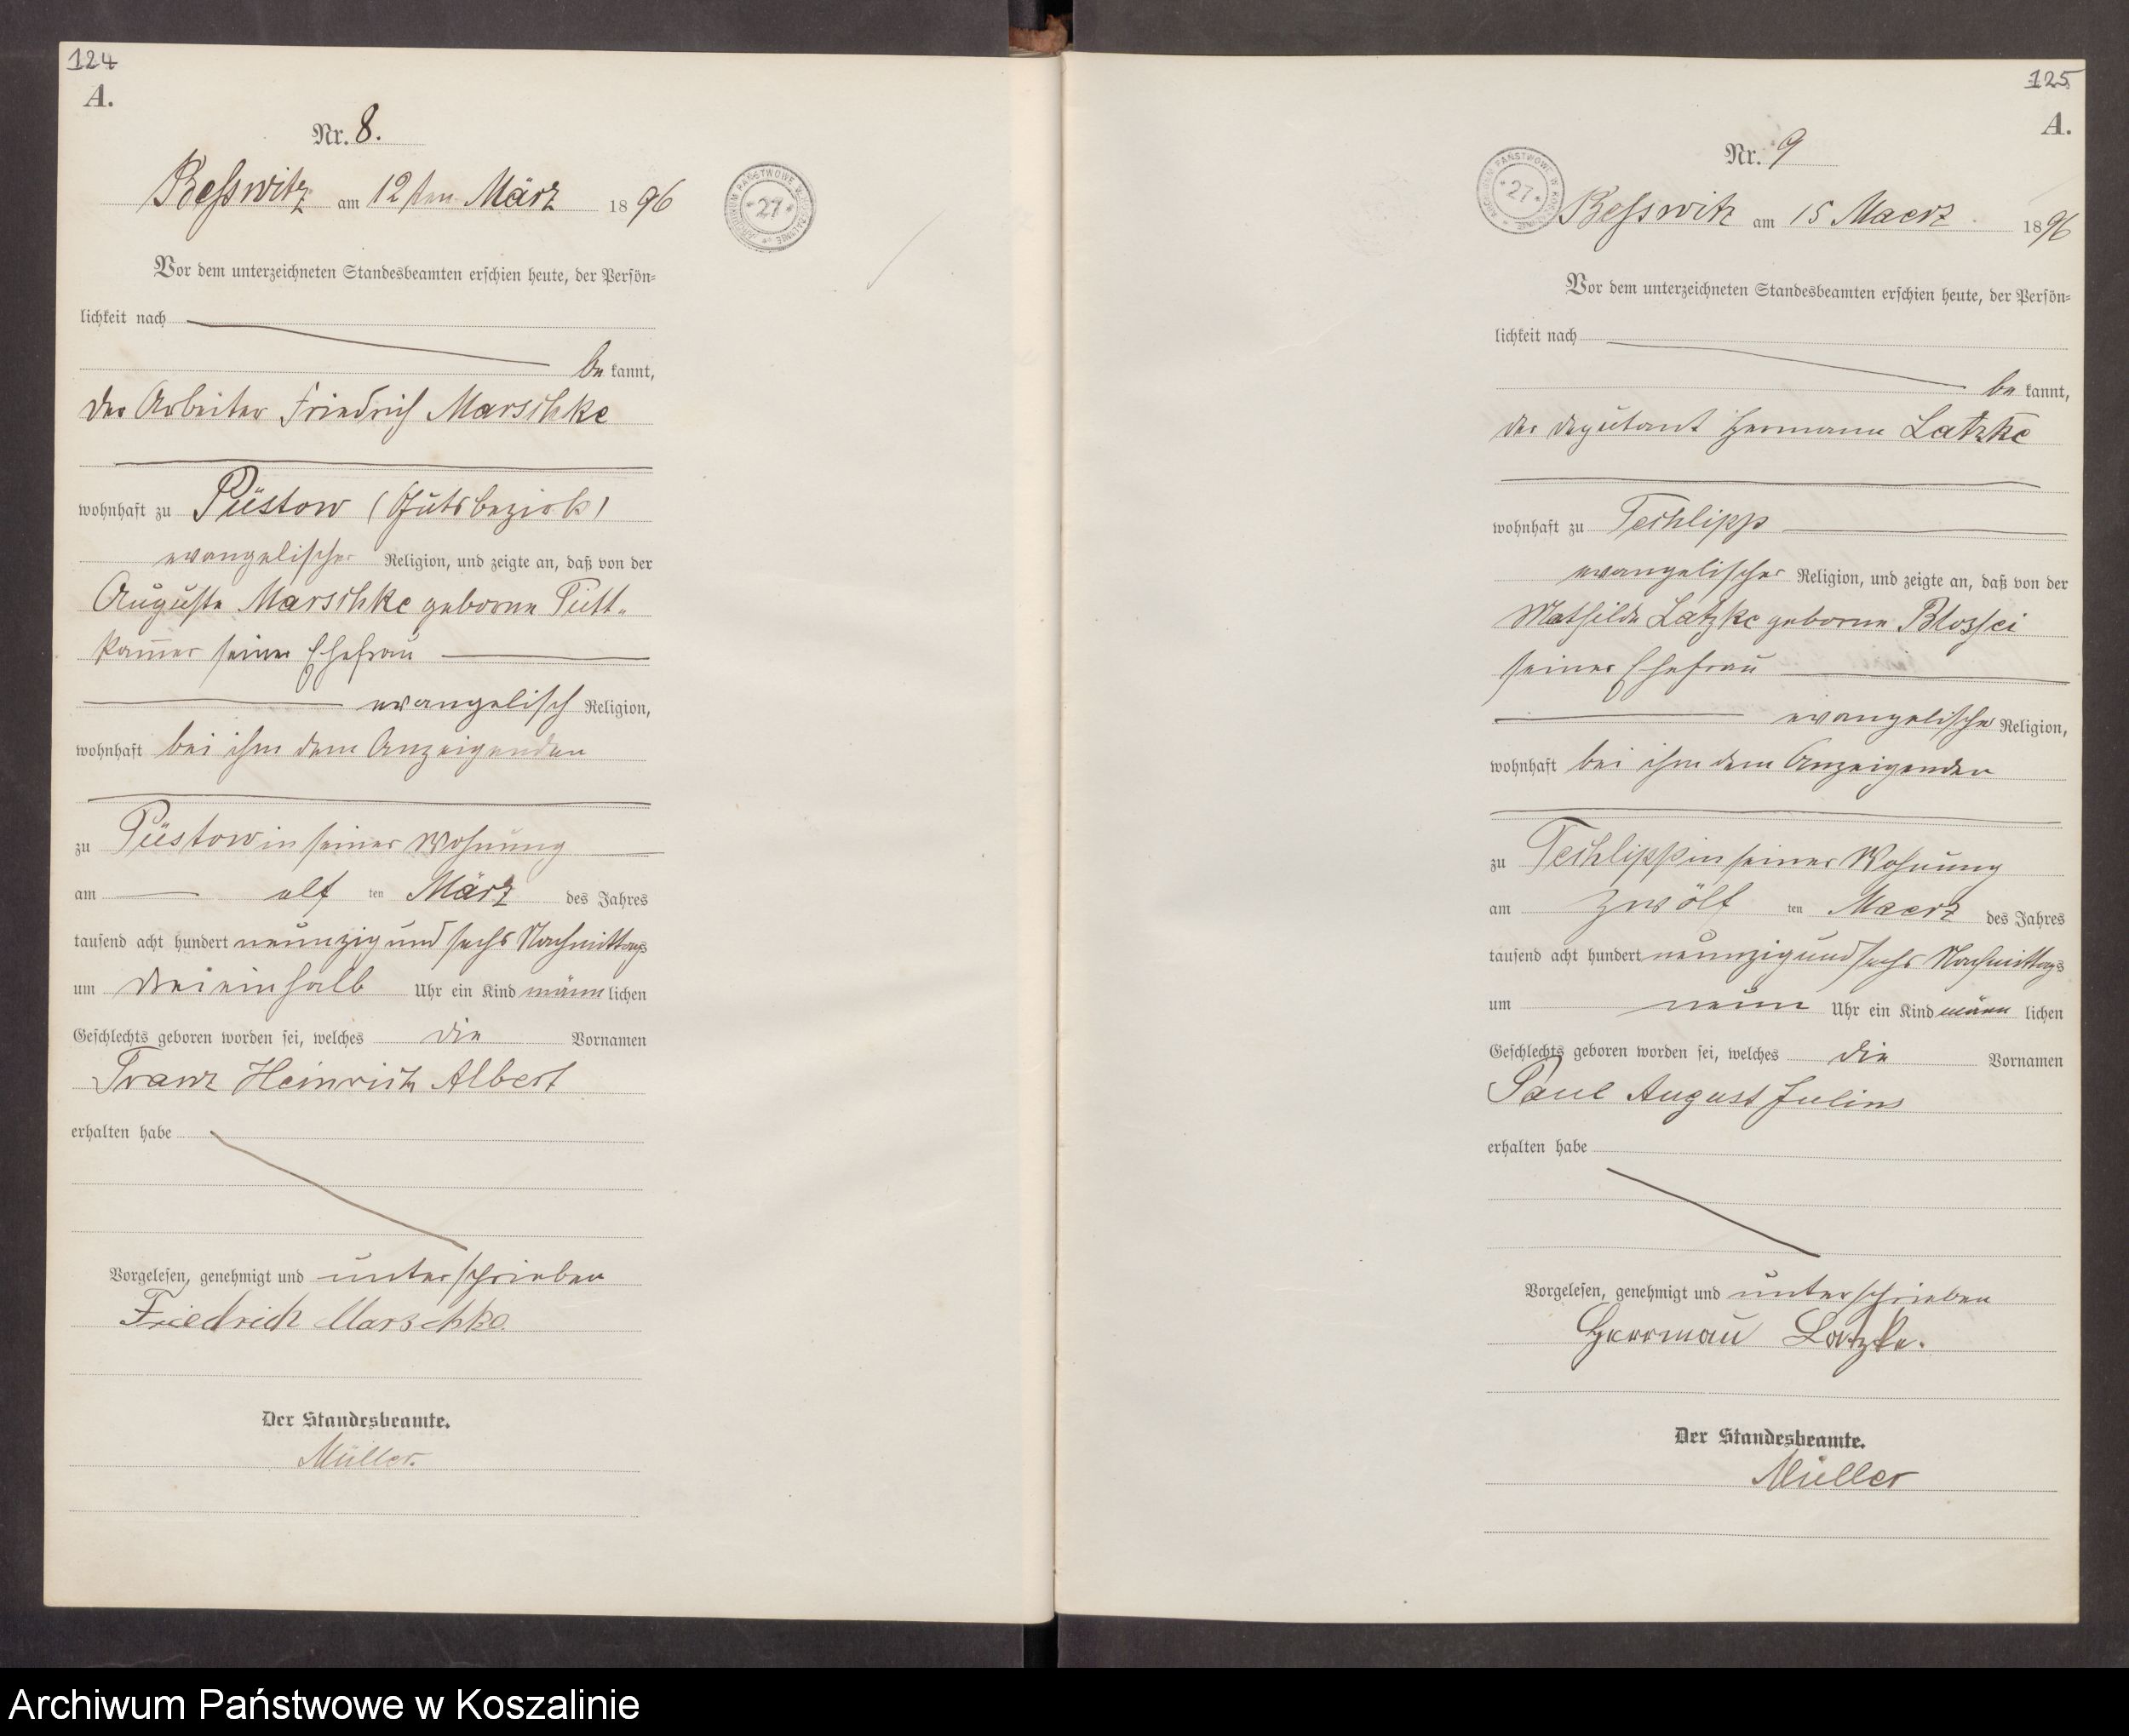 124
A.
Nr. 8.
Besswitz am 12ten März 1896
ARCHIWUM PAŃSTWOWE W KOSZALINIE
* 27 *
Vor dem unterzeichneten Standesbeamten erschien heute, der Persön=
lichkeit nach
be kannt,
der Arbeiter Friedrich Marschke
wohnhaft zu Püstow (Gutsbezirk)
evangelischer Religion, und zeigte an, daß von der
Auguste Marschke geborne Putt-
kamer seiner Ehefrau
evangelisch Religion,
wohnhaft bei ihm dem Anzeigenden
zu Püstow in seiner Wohnung
am elf ten März des Jahres
tausend acht hundert neunzig und sechs Nachmittags
um drei einhalb Uhr ein Kind männ lichen
Geschlechts geboren worden sei, welches die Vornamen
Franz Heinrich Albert
erhalten habe
Vorgelesen, genehmigt und unterschrieben
Friedrich Marschke.
Der Standesbeamte.
Müller.
125
A.
Nr. 9
ARCHIWUM PAŃSTWOWE W KOSZALINIE
* 27 *
Besswitz am 15 Maerz 1896
Vor dem unterzeichneten Standesbeamten erschien heute, der Persön=
lichkeit nach
be kannt,
der Deputant Hermann Latzke
wohnhaft zu Techlipp
evangelischer Religion, und zeigte an, daß von der
Mathilde Latzke geborne
seiner Ehefrau
evangelischer Religion,
wohnhaft bei ihm dem Anzeigenden
zu Techlipp in seiner Wohnung
am zwölf ten Maerz des Jahres
tausend acht hundert neunzig und sechs Nachmittags
um neun Uhr ein Kind männ lichen
Geschlechts geboren worden sei, welches die Vornamen
Paul August Julius
erhalten habe
Vorgelesen, genehmigt und unterschrieben
Herrmann Latzke.
Der Standesbeamte.
Müller
Archiwum Państwowe w Koszalinie